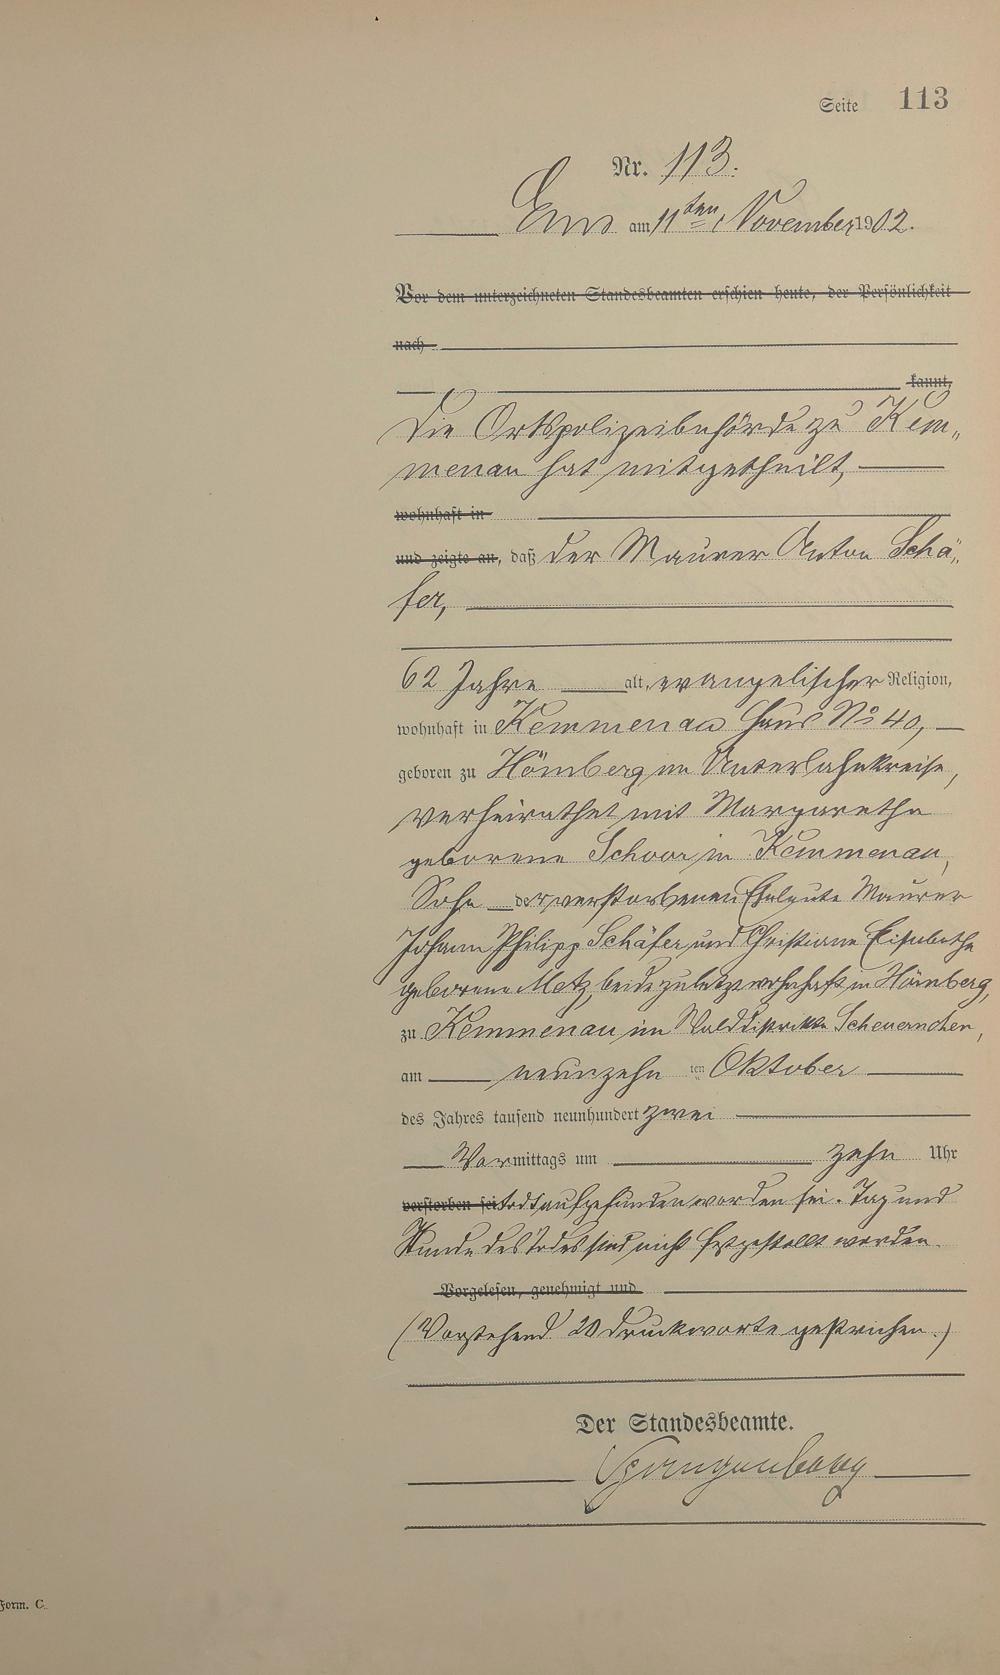 Seite 113
Nr. 113.
Ems am 11ten November 1902.
Vor dem unterzeichneten Standesbeamten erschien heute, der Persönlichkeit
nach
kannt,
Die Ortspolizeibehörde zu Kem„
menau hat mitgetheilt,
wohnhaft in
und zeigte an, daß der Maurer Anton Schä„
fer,
62 Jahre alt, evangelischer Religion,
wohnhaft in Kemmenau Haus No 40,
geboren zu Hömberg im Unterlahnkreise,
verheirathet mit Margarethe
geborene Schoor in Kemmenau,
Sohn der verstorbenen Eheleute Maurer
Johann Philipp Schäfer und Christiane Elisabethe
geborene Metz, beide zuletzt wohnhaft in Hömberg,
zu Kemmenau im Walddistrikte Scheuernchen,
am neunzehn ten Oktober
des Jahres tausend neunhundert zwei
Vormittags um zehn Uhr
verstorben sei todt aufgefunden worden sei. Tag und
Stunde des Todes sind nicht festgestellt worden.
Vorgelesen, genehmigt und
(Vorstehend 20 Druckworte gestrichen.)
Der Standesbeamte.
Form. C.